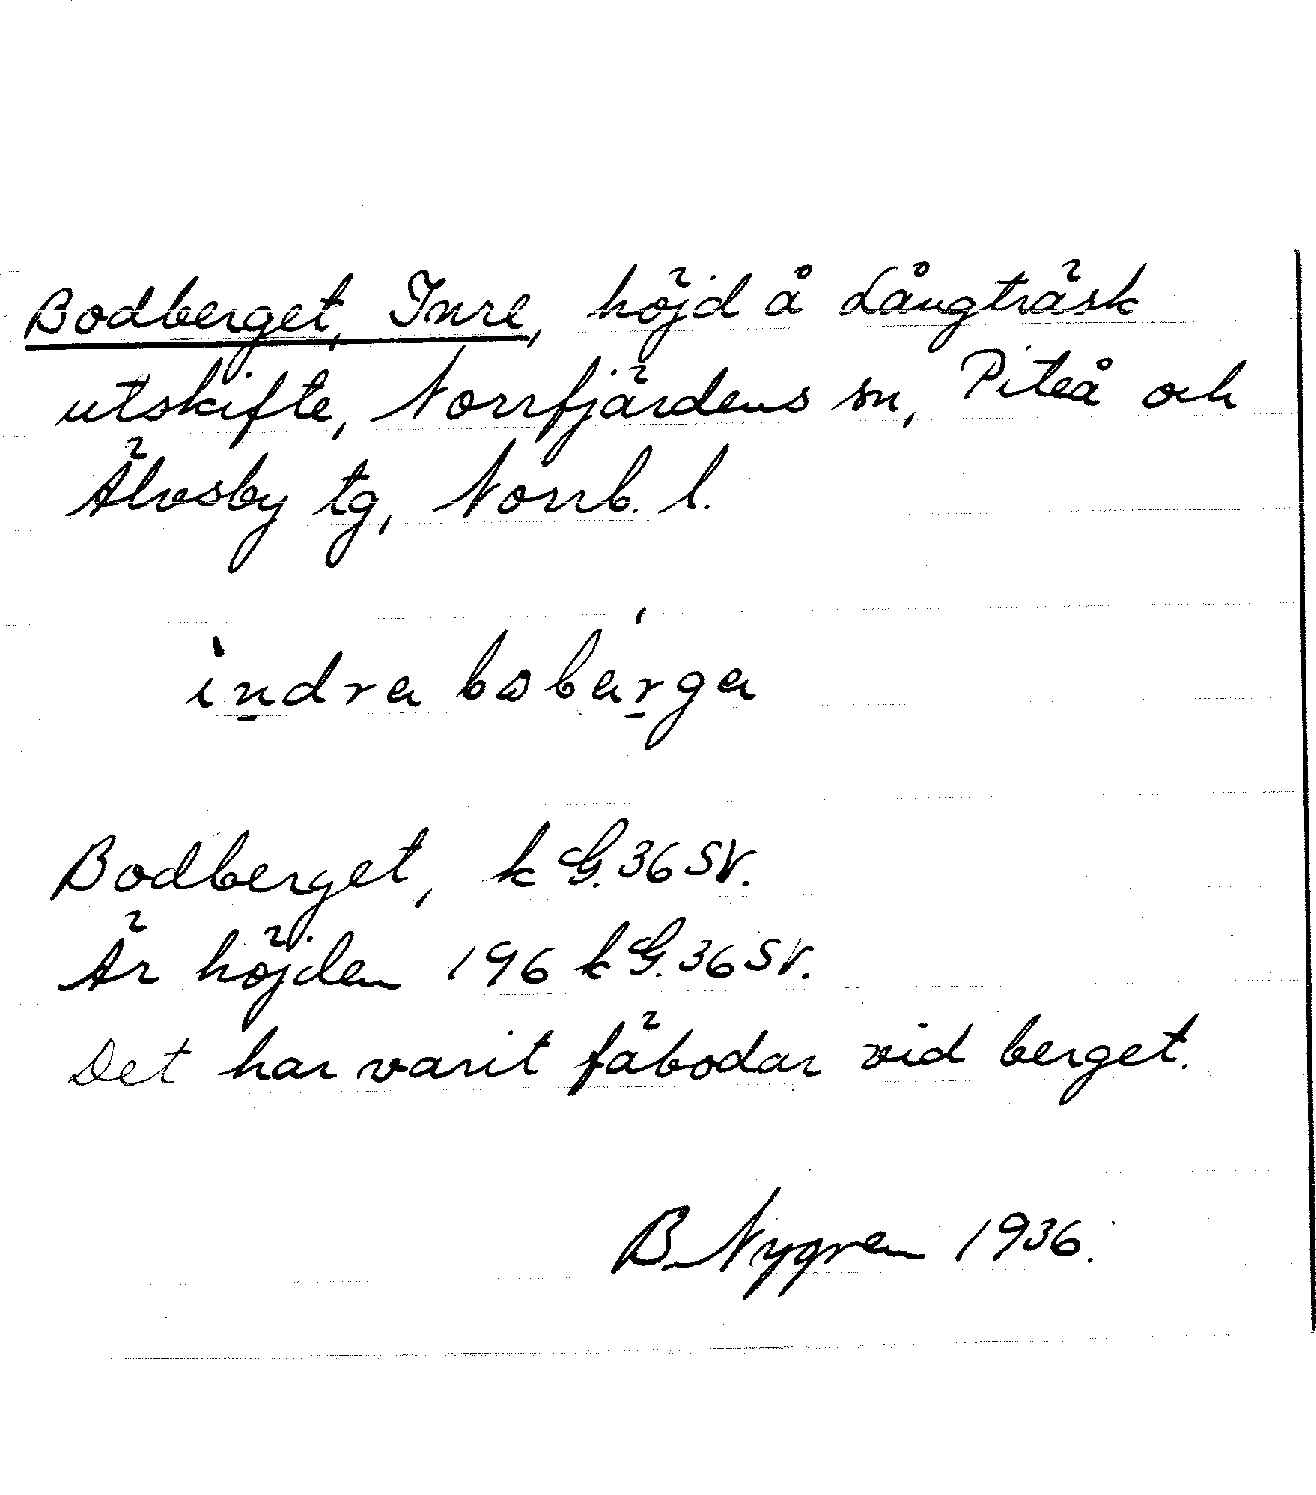 Bodberget, Inre, höjd å Långträsk
utskifte, Norrfjärdens sn, Piteå och
Älvsby tg, Norrb. l.
Bodberget, k G. 36 SV.
Är höjden 196 k G. 36 SV.
Det har varit fäbodar vid berget.
B. Nygren 1936.